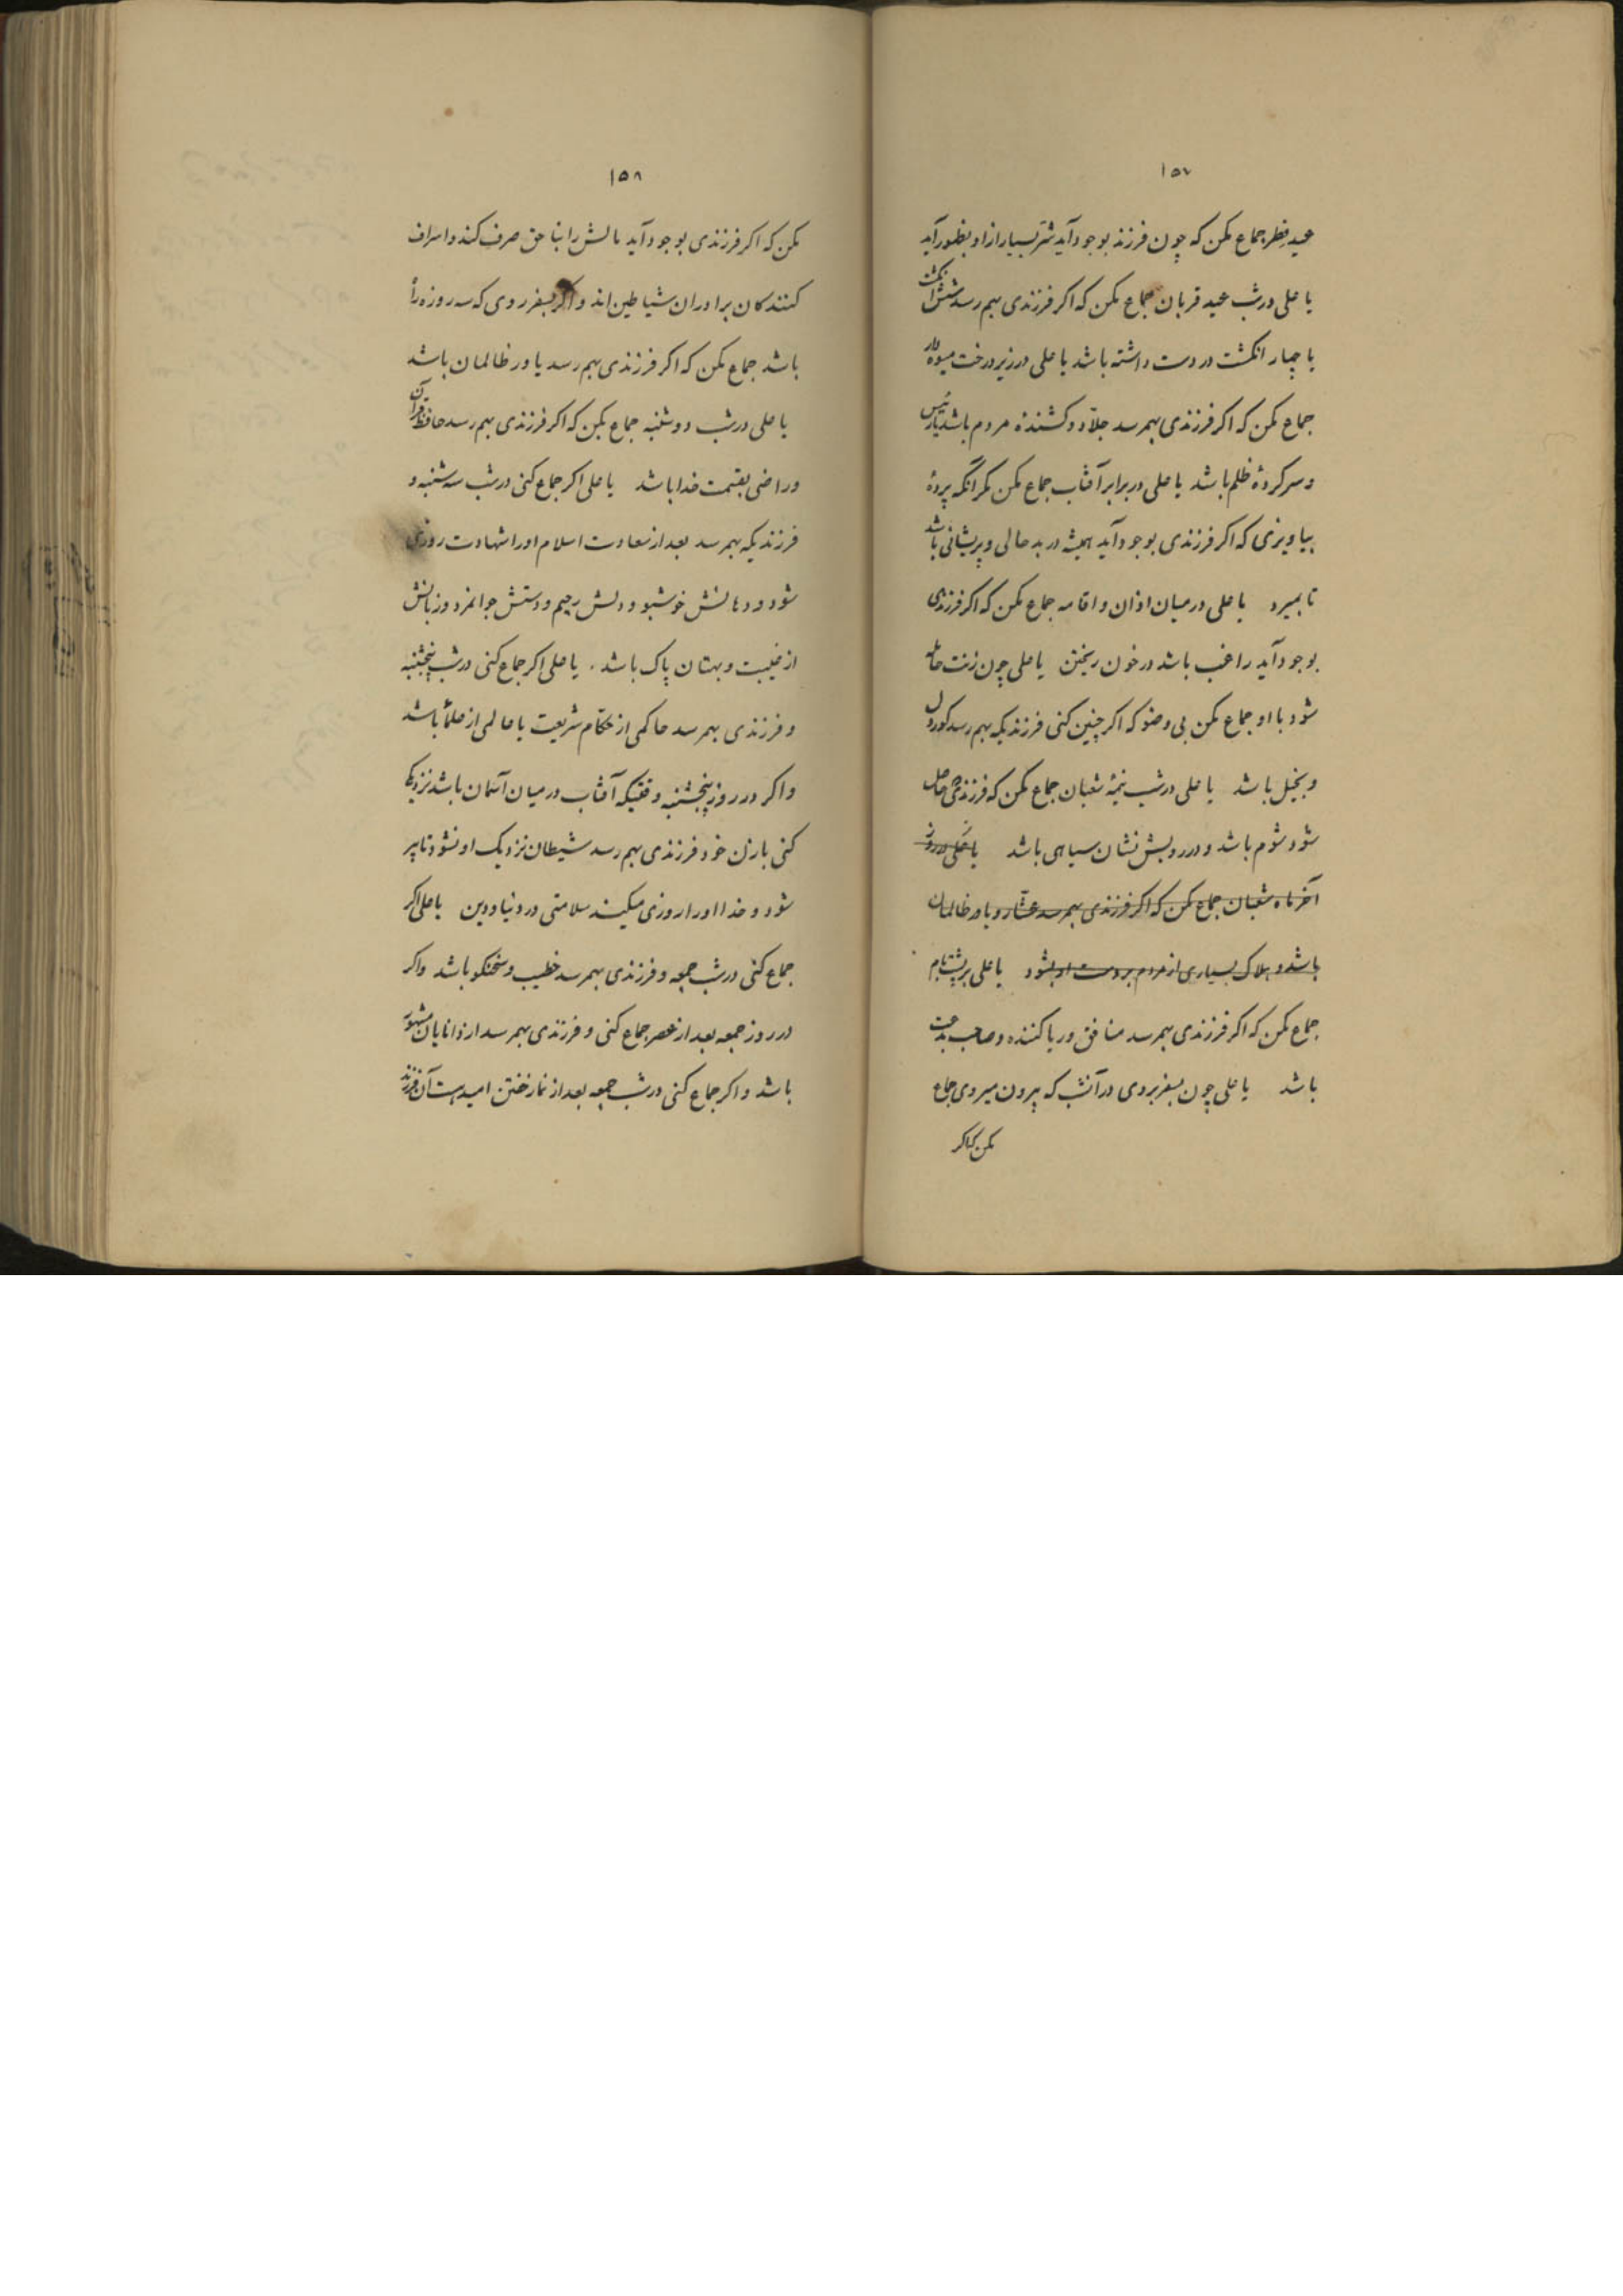 ١٥٧
عید فطر جماع مکن که چون فرزند بوجود آید شرّ بسیار از او بظهور آید
یا علی در شب عید قربان جماع مکن که اکر فرزندی بهم رسد شش انکشت
یا چهار انکشت در دست داشته باشد یا علی در زیر درخت میوه دار
جماع مکن که اکر فرزندی بهمرسد جلّاد و کشنده مردم باشد یا رئیس
و سرکردهٔ ظلم باشد یا علی در برابر آفتاب جماع مکن مکر آنکه پردهٔ
بیاویزی که اکر فرزندی بوجود آید همیشه در بد حالی و پریشانی باشد
تا بمیرد یا علی در میان اذان و اقامه جماع مکن که اکر فرزندی
بوجود آید راغب باشد در خون ریختن یا علی چون زنت حامله
شود با او جماع مکن بی وضو که اکر چنین کنی فرزندیکه بهم رسد کور دل
و بخیل باشد یا علی در شب نیمهٔ شعبان جماع مکن که فرزندی حاصل
شود شوم باشد و در رویش نشان سیاهی باشد یا علی در روز
آخر ماه شعبان جماع مکن که اکر فرزندی بهمرسد عشّار و یاور ظالمان
باشد و هلاک بسیاری از مردم بر دست او بشود یا علی بر پشت بام
جماع مکن که اکر فرزندی بهمرسد منافق و ریا کننده و صاحب بدعت
باشد یا علی چون بسفر بروی در آنشب که بیرون میروی جماع
مکن که اکر
١٥٨
مکن که اکر فرزندی بوجود آید مالش را بناحق صرف کند و اسراف
کنندکان برادران شیاطین اند و اکر بسفر روی که سه روزه راه
باشد جماع مکن که اکر فرزندی بهم رسد یاور ظالمان باشد
یا علی در شب دوشنبه جماع بکن که اکر فرزندی بهم رسد حافظ قرآن
و راضی بقسمت خدا باشد یا علی اکر جماع کنی در شب سه شنبه و
فرزندیکه بهمرسد بعد از سعادت اسلام او را شهادت روزی
شود و دهانش خوشبو و دلش رحیم و دستش جوانمرد و زبانش
از غیبت و بهتان پاک باشد . یا علی اکر جماع کنی در شب پنجشنبه
و فرزندی بهمرسد حاکمی از حکّام شریعت یا عالمی از علما باشد
و اکر در روز پنجشنبه وقتیکه آفتاب در میان آسمان باشد نزدیکی
کنی بازن خود فرزندی بهم رسد شیطان نزدیک او نشود تا پیر
شود و خدا او را روزی میکند سلامتی در دنیا و دین یا علی اکر
جماع کنی در شب جمعه و فرزندی بهمرسد خطیب و سخنکو باشد و اکر
در روز جمعه بعد از عصر جماع کنی و فرزندی بهمرسد از دانایان مشهور
باشد و اکر جماع کنی در شب جمعه بعد از نماز خفتن امید هست آن فرزند